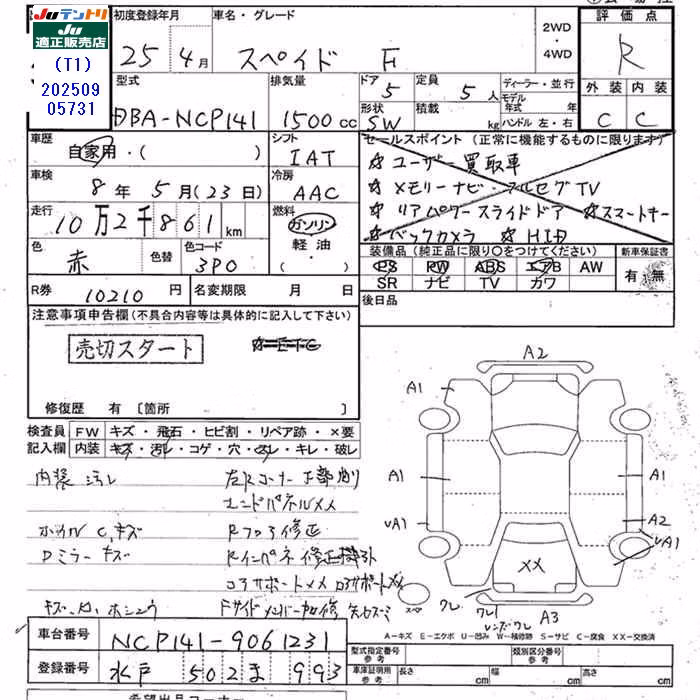 JUテントリ
JU適正販売店
(T1)
202509
05731
初度登録年月
25年 4月
車名・グレード
スペイド F
2WD
・
4WD
評価点
R
外装 内装
C C
型式
DBA-NCP141
排気量
1500cc
ドア 5
形状 SW
定員 5人
積載 kg
ディーラー・並行
モデル年式 年
ハンドル 左・右
車歴
自家用・( )
シフト
IAT
車検
8年 5月(23日)
冷房
AAC
走行
10万2千861km
燃料
ガソリン
軽油
( )
色
赤
色替
色コード
3P0
セールスポイント(正常に機能するものに限ります)
☆ユーザー買取車
☆メモリーナビ・フルセグTV
☆リアパワースライドドア ☆スマートキー
☆バックカメラ ☆HID
装備品(純正品に限り○をつけてください)
PS PW ABS エアB AW
SR ナビ TV カワ
新車保証書
有・無
R券 10210円
名変期限 月 日
後日品
注意事項申告欄(不具合内容等は具体的に記入して下さい)
売切スタート
☆ETC
修復歴 有 [箇所 ]
検査員記入欄
FW キズ・飛石・ヒビ割・リペア跡・×要
内装 キズ・汚レ・コゲ・穴・欠品・キレ・破レ
内装汚レ
左Rコーナー下部削リ
エンドパネルメメ
ホイルC,キズ
Rフロア修正
Dミラーキズ
Rインパネ修正
コアサポートメメ
A2
A1
A1
A1
UA1
A2
UA1
XX
ワレ
ワレ1
レンズワレ
A3
スペア
A-キズ E-エクボ U-凹み W-補修跡 S-サビ C-腐食 XX-交換済
車台番号
NCP141-9061231
登録番号
水戸 502 ま 993
型式指定番号
参考
類別区分番号
参考
車庫証明用
参考
長さ cm
幅 cm
高さ cm